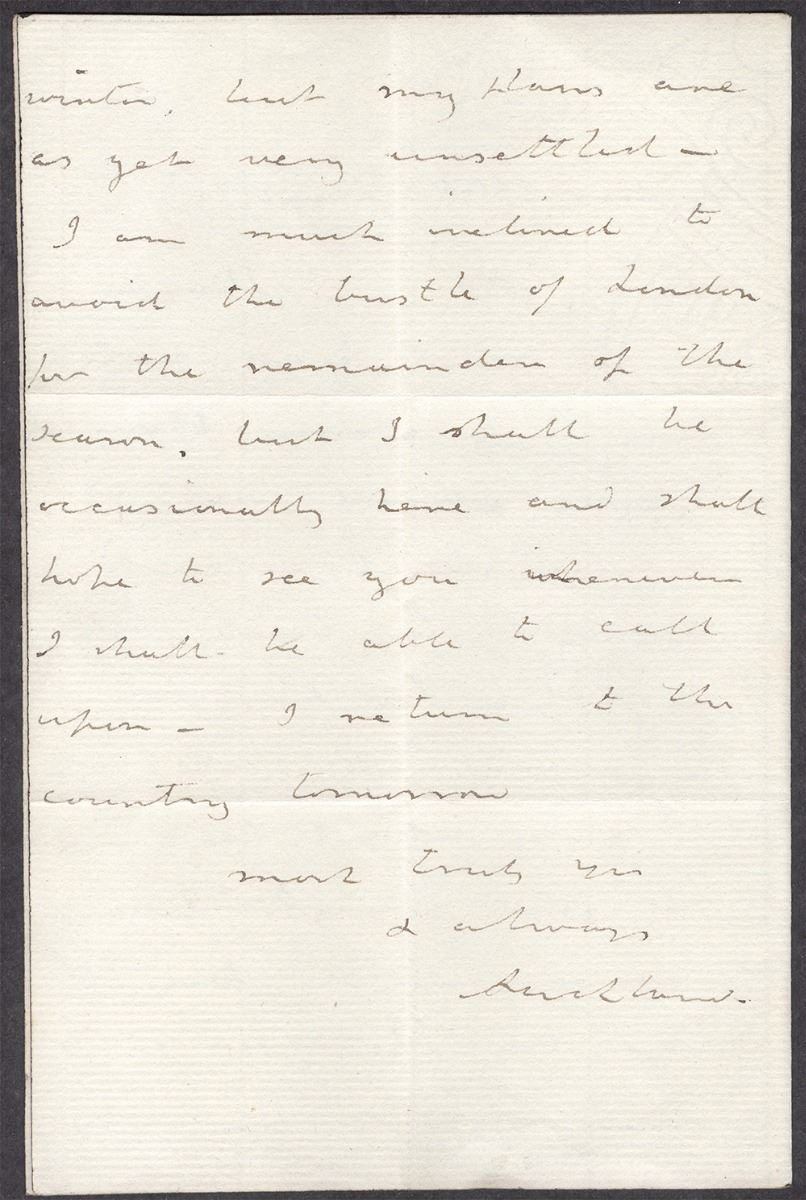 winter, but my plans are
as yet very unsettled —
I am much inclined to
avoid the bustle of London
for the remainder of the
season, but I shall be
occasionally here and shall
hope to see you whenever
I shall be able to call
upon — I return to the
country tomorrow
most truly yrs
& always
Auckland.